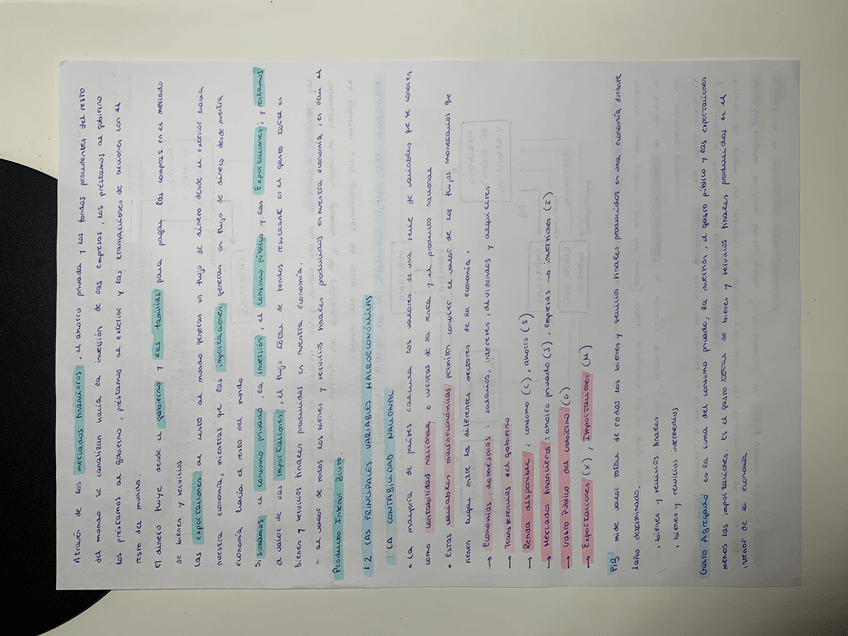 A través de los mercados financieros, el ahorro privado y los fondos procedentes del resto
del mundo se canalizan hacia la inversión de las empresas, los préstamos al gobierno
los préstamos al gobierno, préstamos al exterior y las transacciones de acciones con el
resto del mundo.
El dinero fluye desde el gobierno y las familias para pagar las compras en el mercado
de bienes y servicios
Las exportaciones al resto del mundo generan un flujo de dinero desde el exterior hacia
nuestra economía, mientras que las importaciones generan un flujo de dinero desde nuestra
economía hacia el resto del mundo
Si sumamos el consumo privado, la inversión, el consumo público y las Exportaciones, y restamos
el valor de las importaciones, el flujo total de fondos resultante es el gasto total en
bienes y servicios finales producidos en nuestra economía.
= al valor de todos los bienes y servicios finales producidos en nuestra economía, es decir el
Producto Interior Bruto
1.2 LAS PRINCIPALES VARIABLES MACROECONÓMICAS
1. LA CONTABILIDAD NACIONAL
• La mayoría de países calcula los valores de una serie de variables que se conocen
como contabilidad nacional o cuentas de la renta y el producto nacional
• Estas variables macroeconómicas permiten conocer el valor de los flujos monetarios que
tienen lugar entre los diferentes sectores de la economía.
→ Economías domésticas: salarios, intereses, dividendos y alquileres
→ Transferencias del gobierno
→ Renta disponible: consumo (C), ahorro (S)
→ Mercados financieros: ahorro privado (S), empresas → inversiones (I)
→ Gasto Público del Gobierno (G)
→ Exportaciones (X), Importaciones (M)
PIB mide valor total de todos los bienes y servicios finales producidos en una economía durante
determinado.
• bienes y servicios finales
• bienes y servicios intermedios
Gasto Agregado es la suma del consumo privado, la inversión, el gasto público y las exportaciones
menos las importaciones. Es el gasto total de bienes y servicios finales producidos en el
interior de la economía